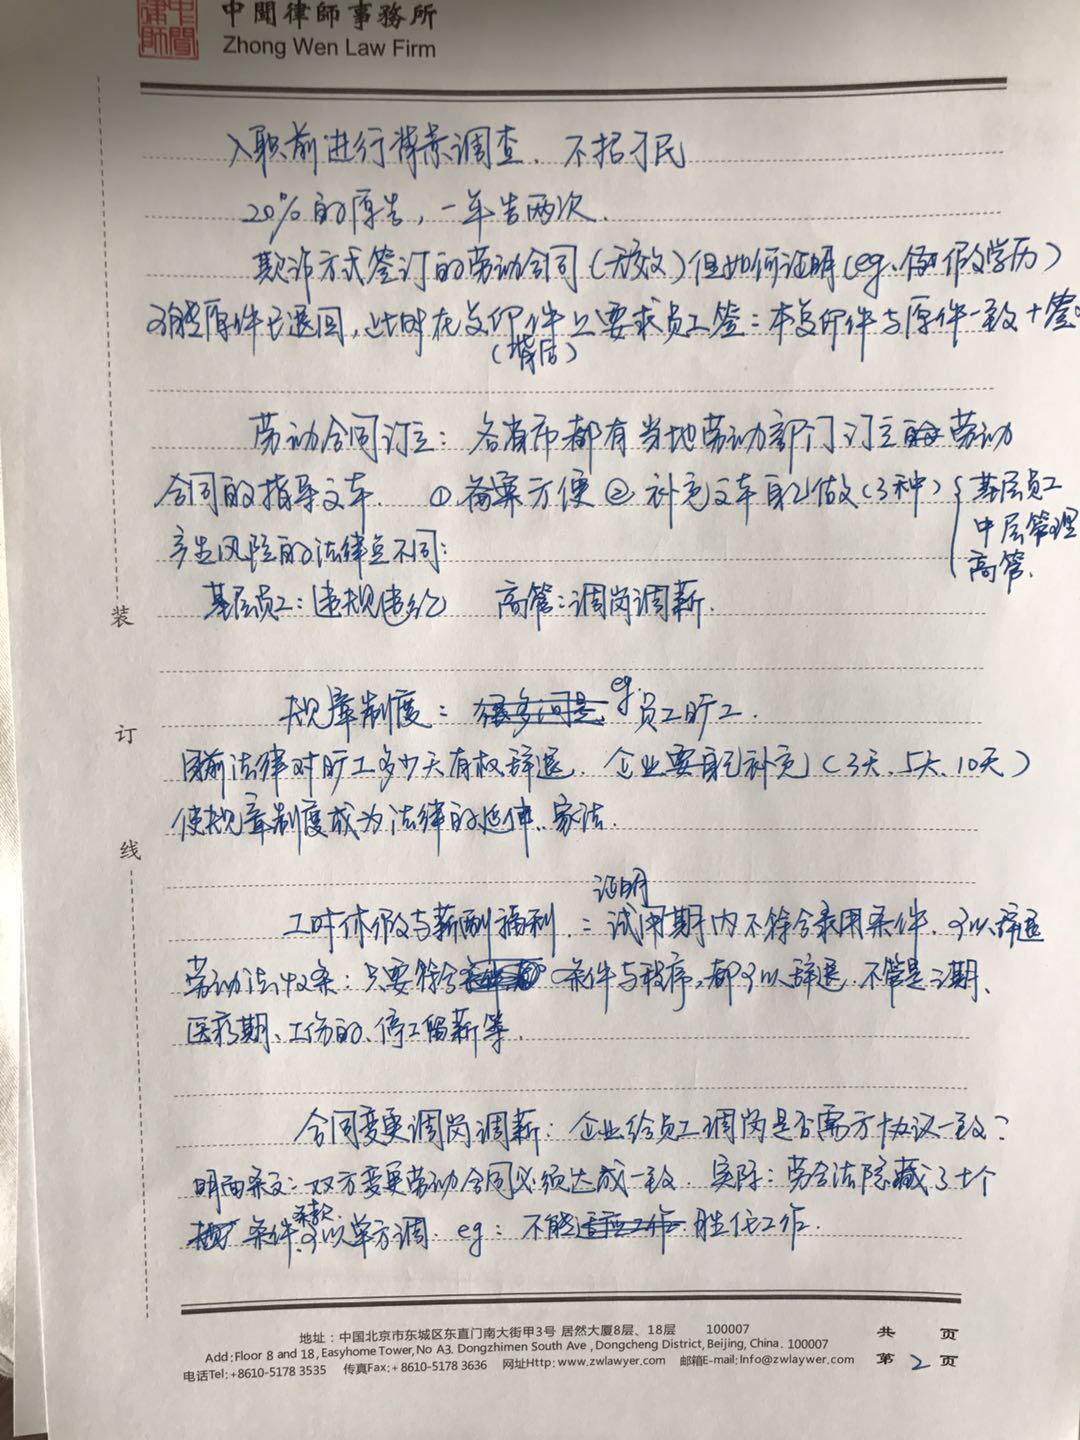 中聞律師事務所
Zhong Wen Law Firm
入职前进行背景调查、不招刁民
20%的原告，一年告两次.
欺诈方式签订的劳动合同（无效）但如何证明（eg、假学历）
可能原件已退回，此时在复印件上要求员工签：本复印件与原件一致+签
劳动合同订立：各省市都有当地劳动部门订立劳动
合同的指导文本. ①备案方便 ② 补充文本自己做（3种）{基层员工
中层管理
高管.
产生风险的法律点不同：
基层员工：违规违纪 高管：调岗调薪.
装
规章制度： eg.员工旷工.
订
目前法律对旷工多少天有权辞退. 企业要自己补充（3天、5天、10天）
使规章制度成为法律的延伸、家法.
线
证明
工时休假与薪酬福利：试用期内不符合录用条件、可以辞退
劳动法 条：只要符合条件与程序，都可以辞退. 不管是三期、
医疗期、工伤的、停工留薪等.
合同变更调岗调薪：企业给员工调岗是否需方协议一致？
明面条文：双方变更劳动合同必须达成一致. 实际：劳合法隐藏了十个
条款
条件可以单方调. eg：不能胜任工作.
地址：中国北京市东城区东直门南大街甲3号 居然大厦8层、18层 100007
Add:Floor 8 and 18, Easyhome Tower, No A3. Dongzhimen South Ave , Dongcheng District, Beijing, China. 100007
电话Tel:+8610-5178 3535 传真Fax:+8610-5178 3636 网址Http: www.zwlawyer.com 邮箱E-mail:Info@zwlaywer.com
共 页
第 2 页